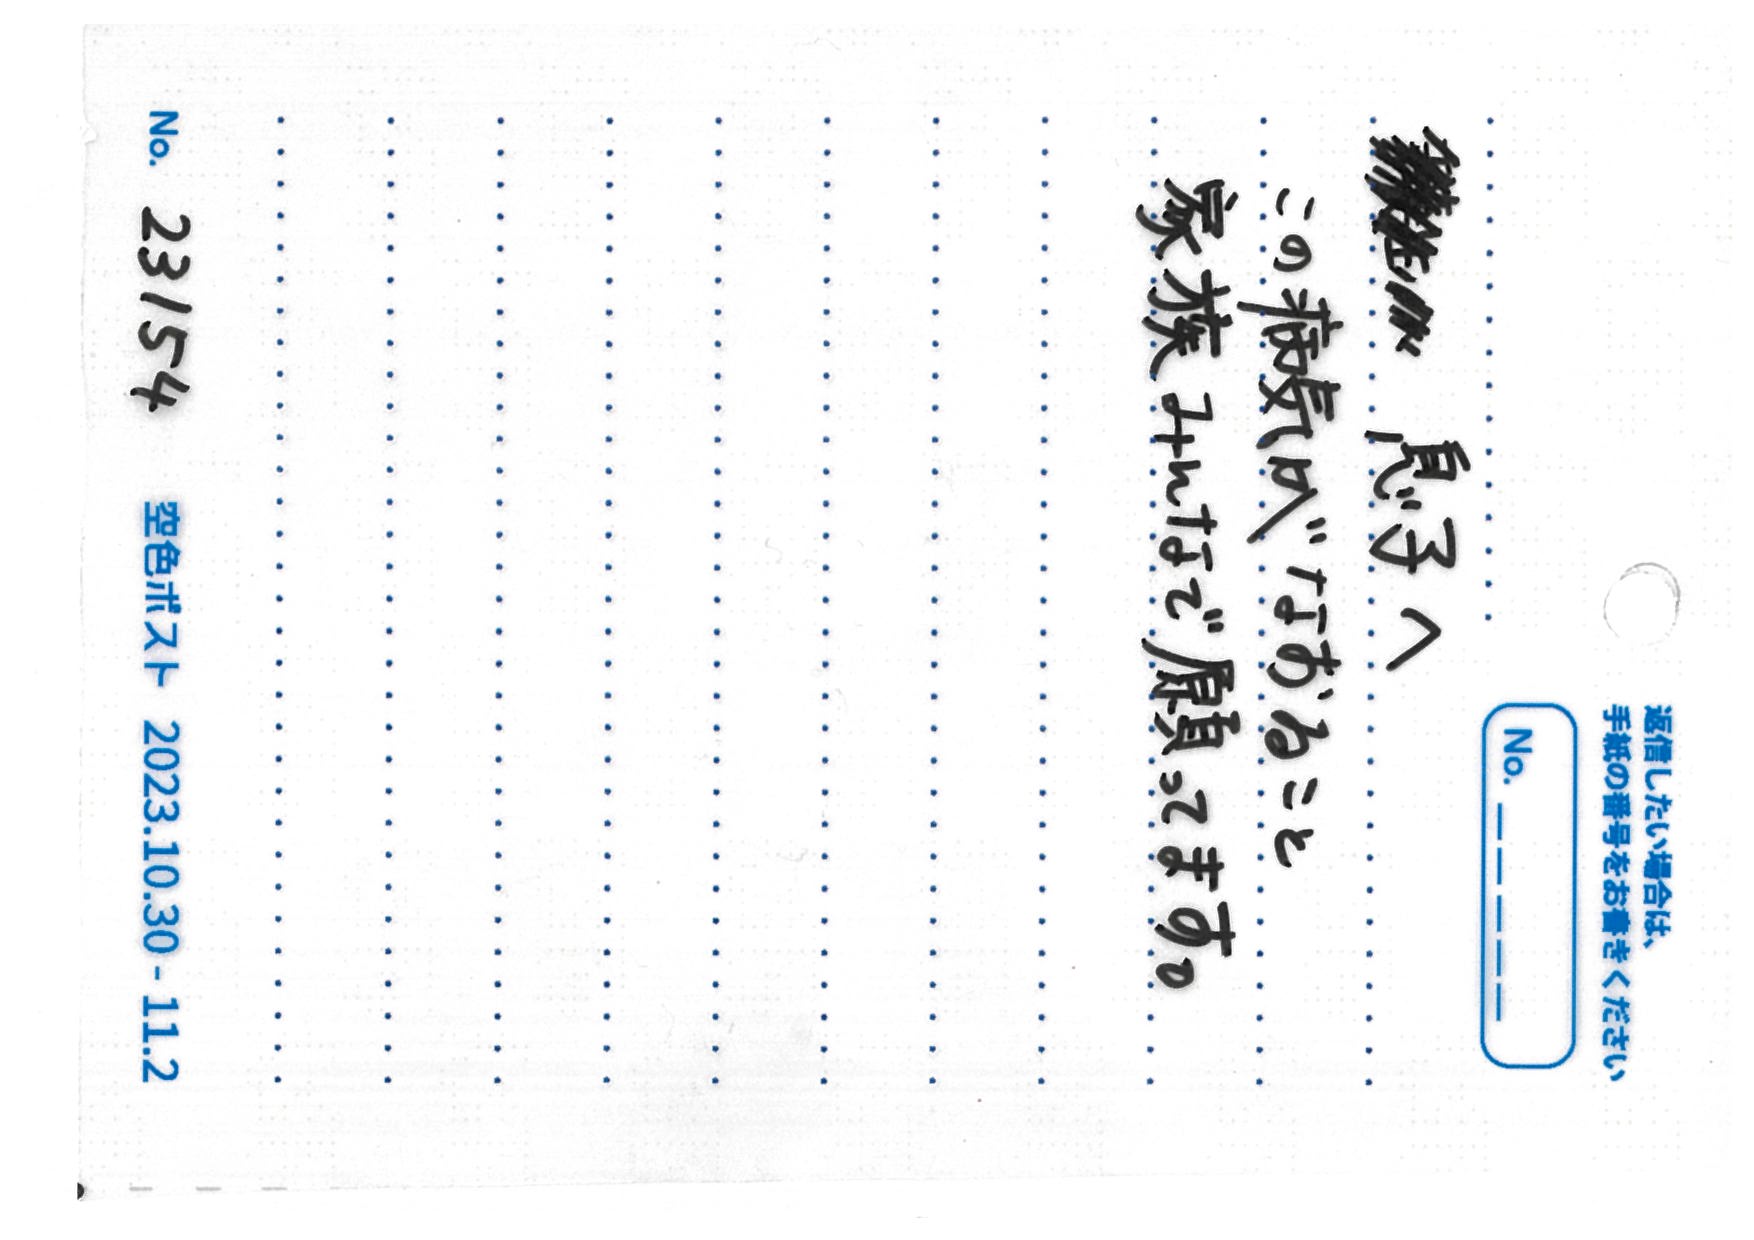 返信したい場合は、
手紙の番号をお書きください
No. _ _ _ _ _
息子へ
この病気がなおること
家族みんなで願ってます。
No. 23154 空色ポスト 2023.10.30 - 11.2